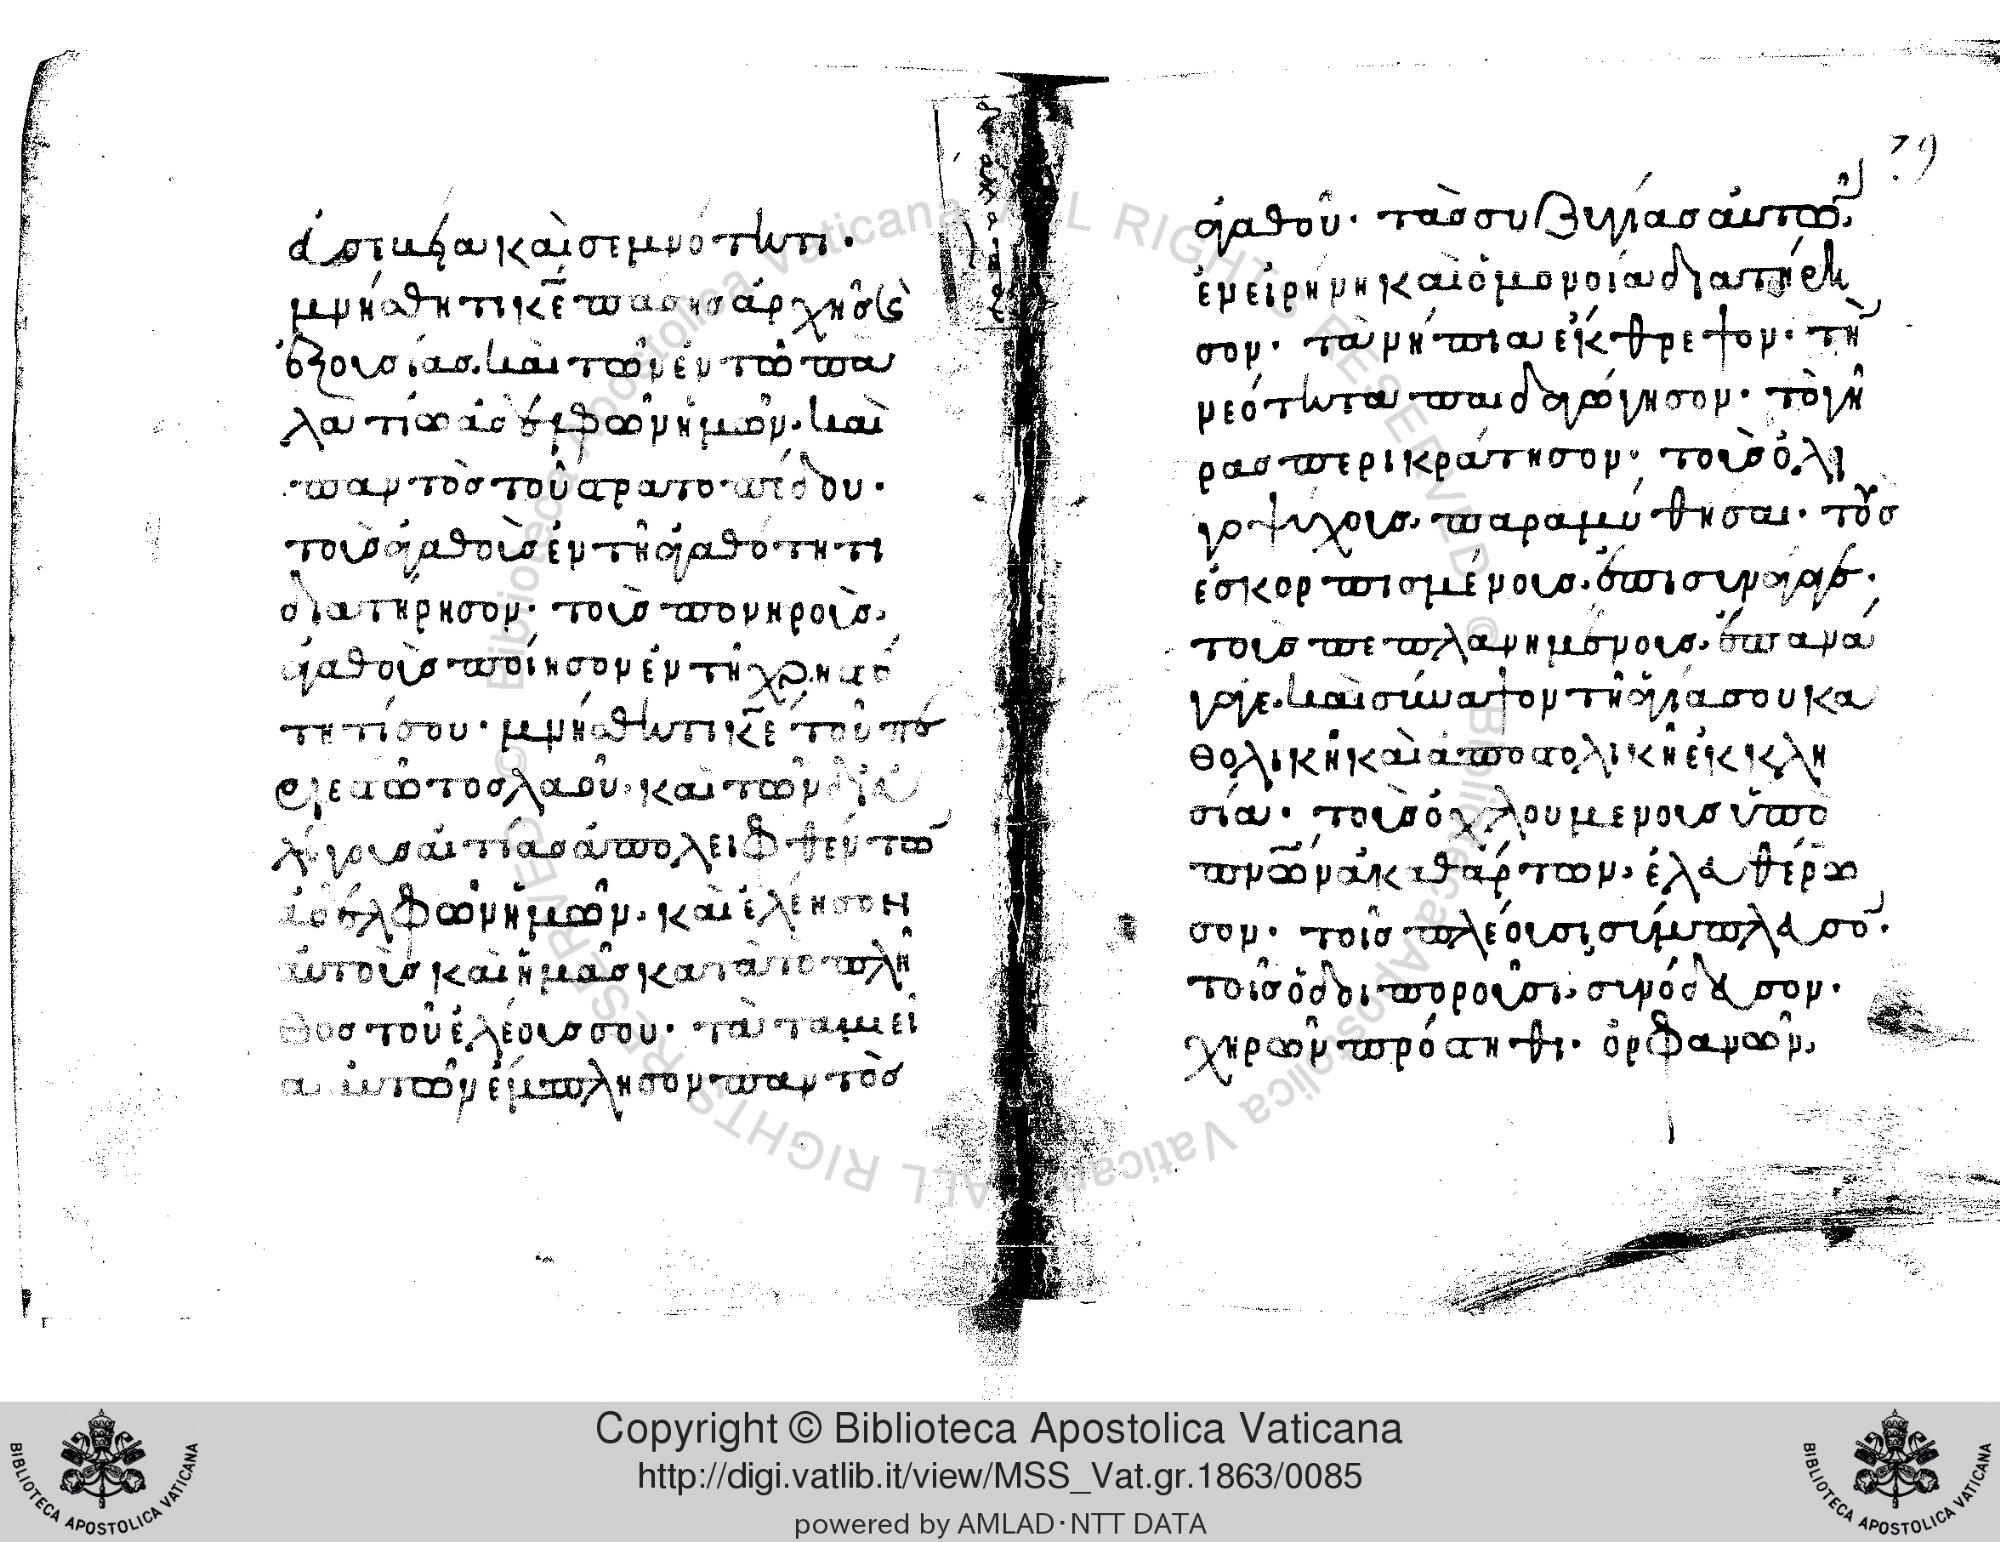 εὐσεβεία καὶ σεμνότητι·
μνήσθητι κ̅ε̅ πάσης ἀρχῆς κ(αὶ)
ἐξουσίας. καὶ τῶν ἐν τῶ πα
λατίω ἀδελφῶν ἡμῶν. καὶ
παντὸς τοῦ στρατοπέδου·
τοὺς ἀγαθοὺς ἐν τῆ ἀγαθότητι
διατήρησον· τοὺς πονηροὺς,
ἀγαθοὺς ποίησον ἐν τῆ χρηστό
τητί σου· μνήσθητι κ̅ε̅ τοῦ πε
ριεστῶτος λαοῦ· καὶ τῶν δι' εὐ
λόγους αἰτίας ἀπολειφθέντων
ἀδελφῶν ἡμῶν. καὶ ἐλέησον
αὐτοὺς καὶ ἡμᾶς κατὰ τὸ πλῆ
θος τοῦ ἐλέους σου· τὰ ταμεῖ
α αὐτῶν ἔμπλησον παντὸς
79
ἀγαθοῦ· τὰς συζυγίας αὐτῶν,
ἐν εἰρήνη καὶ ὁμονοία διατήρη
σον· τὰ νήπια ἔκθρεψον· τὴν
νεότητα παιδαγώγησον· τὸ γῆ
ρας περικράτησον· τοὺς ὀλι
γοψύχους, παραμύθησαι· τοὺς
ἐσκορπισμένους, ἐπισυνάγαγε·
τοὺς πεπλανημένους, ἐπανά
γαγε. καὶ σύναψον τῆ ἁγία σου κα
θολικῆ καὶ ἀποστολικῆ ἐκκλη
σία· τοὺς ὀχλουμένους ὑπὸ
πν̅ῶν ἀκαθάρτων, ἐλευθέρω
σον· τοῖς πλέουσι, σύμπλευσον·
τοῖς ὁδοιποροῦσι, συνόδευσον·
χηρῶν πρόστηθι· ὀρφανῶν,
Copyright © Biblioteca Apostolica Vaticana
http://digi.vatlib.it/view/MSS_Vat.gr.1863/0085
powered by AMLAD·NTT DATA
BIBLIOTECA APOSTOLICA VATICANA
BIBLIOTECA APOSTOLICA VATICANA
© Biblioteca Apostolica Vaticana ALL RIGHTS RESERVED
© Biblioteca Apostolica Vaticana ALL RIGHTS RESERVED